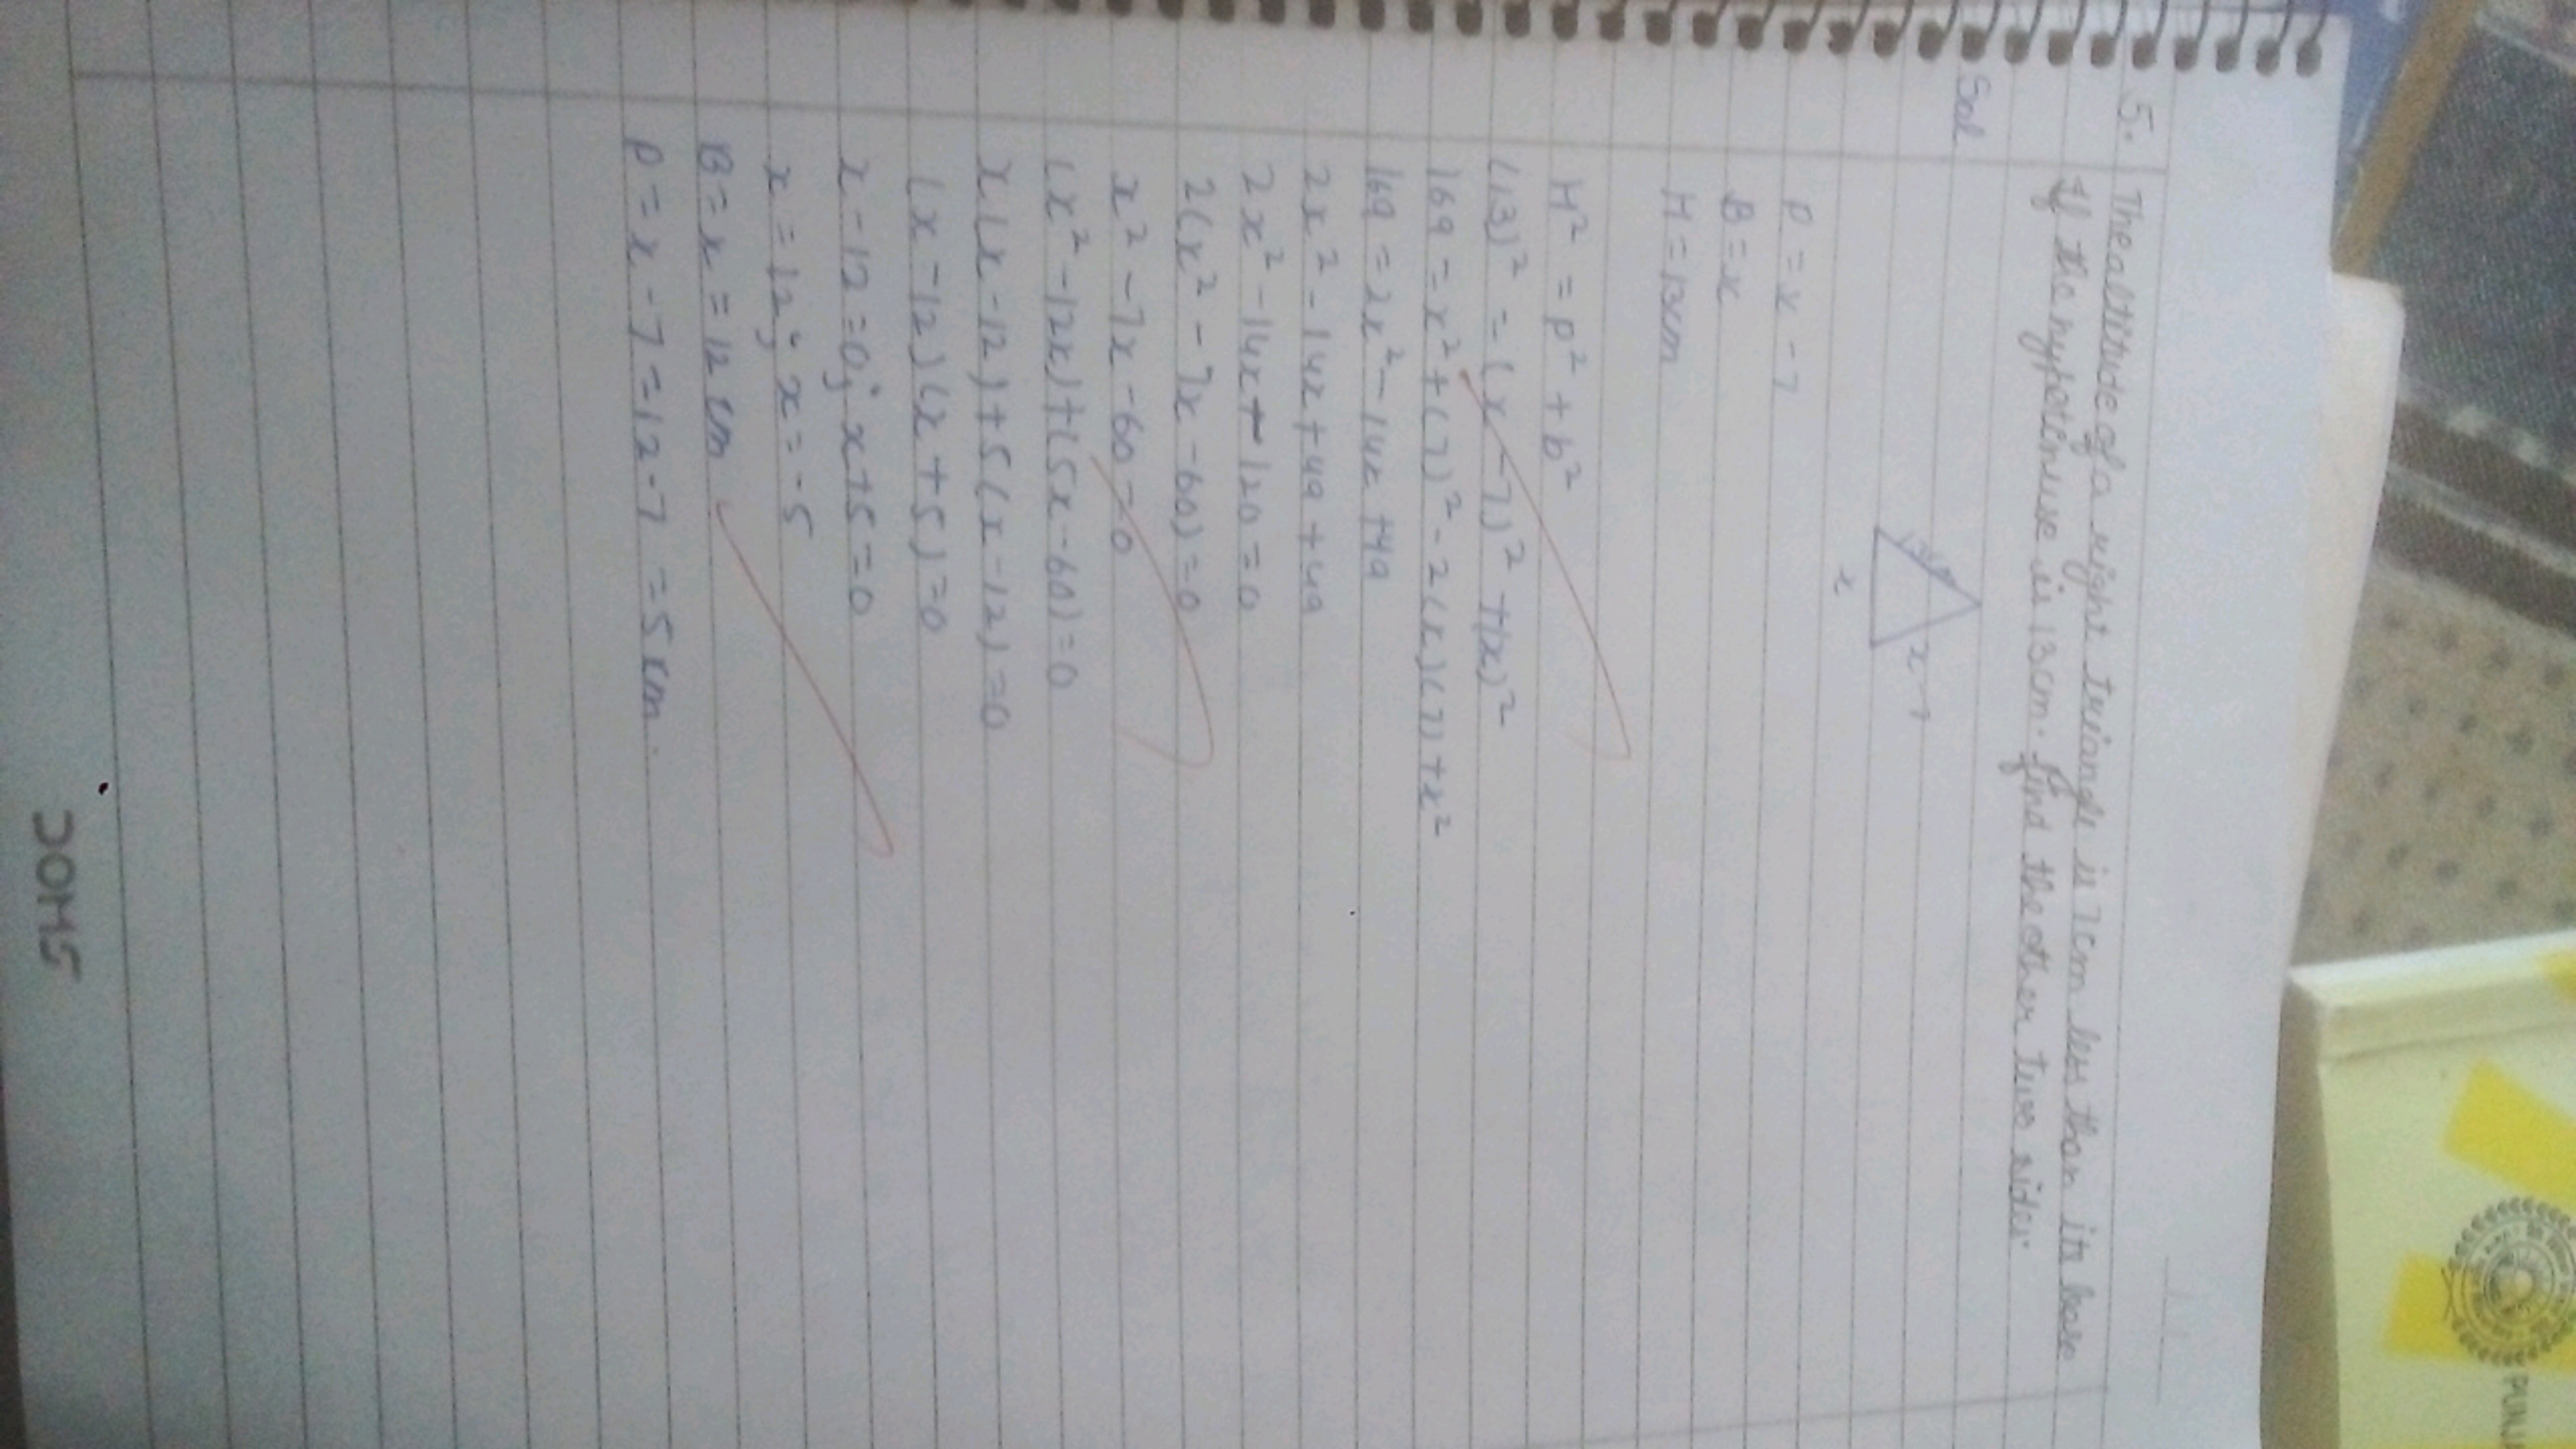 5. The altitude of a right triangle is 7cm less than its base
If the hypotenuse is 13cm. find the other two sides.
Sol
x-7
x
P = x - 7
B = x
H = 13cm
H² = P² + b²
(13)² = (x - 7)² + (x)²
169 = x² + (7)² - 2(x)(7) + x²
169 = 2x² - 14x + 49
2x² - 14x + 49 + 49
2x² - 14x - 120 = 0
2(x² - 7x - 60) = 0
x² - 7x - 60 = 0
(x² - 12x) + (5x - 60) = 0
x(x - 12) + 5(x - 12) = 0
(x - 12)(x + 5) = 0
x - 12 = 0; x + 5 = 0
x = 12; x = -5
B = x = 12 cm
P = x - 7 = 12 - 7 = 5 cm.